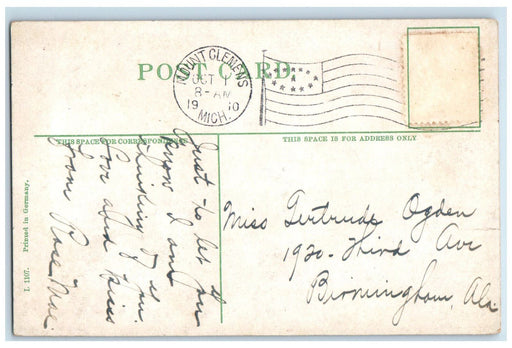 POST CARD
MOUNT CLEMENS
OCT
8-AM
19 10
MICH.
THIS SPACE FOR CORRESPONDENCE
THIS SPACE IS FOR ADDRESS ONLY
Just to let you
know I am
thinking of you.
Love and kiss
from Rose
Miss Gertrude Ogden
1920-Third Ave
Birmingham, Ala
L 1107. Printed in Germany.